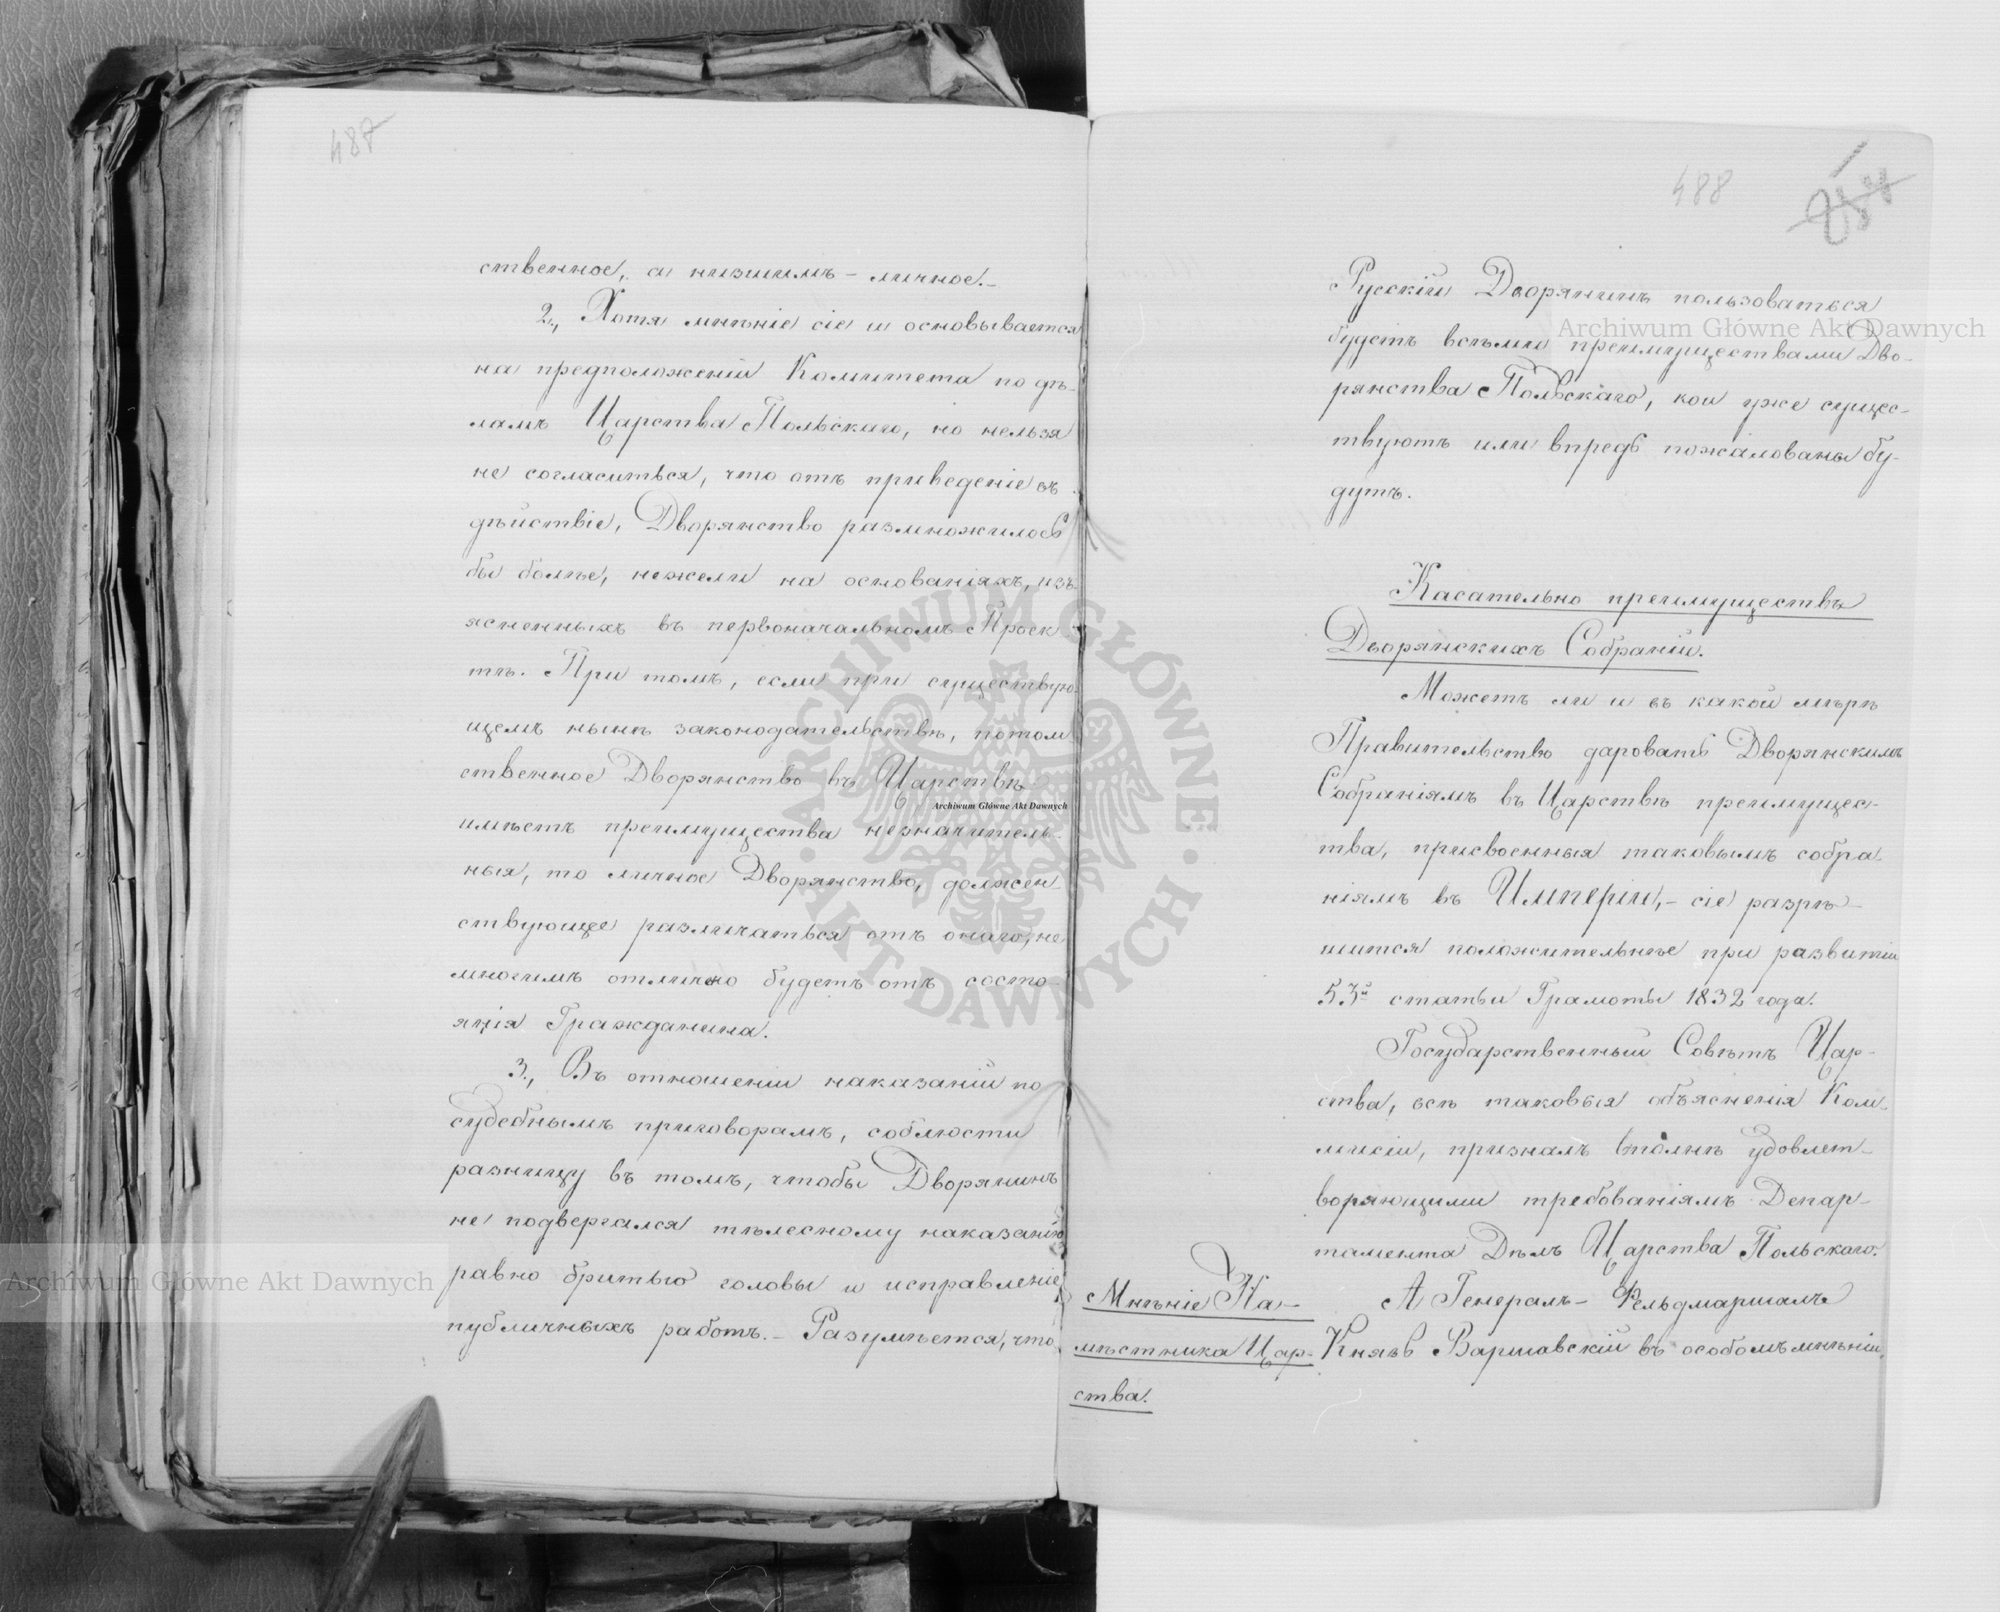 487
ственное, а низшимъ – личное.–
2., Хотя мнѣніе сіе и основывается
на предположеніи Комитета по дѣ-
ламъ Царства Польскаго, но нельзя
не согласиться, что отъ приведеніе въ
дѣйствіе, Дворянство размножилось
бы болѣе, нежели на основаніяхъ, изъ-
ясненныхъ въ первоначальномъ Проек
тѣ. При томъ, если при существую-
щемъ нынѣ законодательствѣ, потом
ственное Дворянство въ Царствѣ
имѣетъ преимущества незначитель-
ныя, то личное Дворянство, должен-
ствующее различаться отъ онаго, не
многимъ отлично будетъ отъ состо-
янія Гражданина.
3., Въ отношеніи наказаній по
судебнымъ приговорамъ, соблюсти
разницу въ томъ, чтобы Дворянинъ
не подвергался тѣлесному наказанію
равно бритью головы и исправленіе
публичныхъ работъ. – Разумѣется, что
488
Русскій Дворянинъ пользоваться
будетъ всѣми преимуществами Дво-
рянства Польскаго, кои уже сущес-
твуютъ или впредь пожалованы бу-
дутъ.
Касательно преимуществъ
Дворянскихъ Собраній.
Можетъ ли и въ какой мѣрѣ
Правительство даровать Дворянскимъ
Собраніямъ въ Царствѣ преимущес-
тва, присвоенныя таковымъ собра-
ніямъ въ Имперіи, – сіе разрѣ-
шится положительнѣе при развитіи
53й статьи Грамоты 1832 года.
Государственный Совѣтъ Цар-
ства, всѣ таковыя объясненія Ком-
мисіи, призналъ вполнѣ удовлет-
воряющими требованіямъ Депар-
тамента Дѣлъ Царства Польскаго.
А Генералъ – Фельдмаршалъ
Князь Варшавскій въ особомъ мнѣніи,
Мнѣніе На-
мѣстника Цар-
ства.
Archiwum Główne Akt Dawnych
Archiwum Główne Akt Dawnych
Archiwum Główne Akt Dawnych
ARCHIWUM GŁÓWNE · AKT DAWNYCH ·